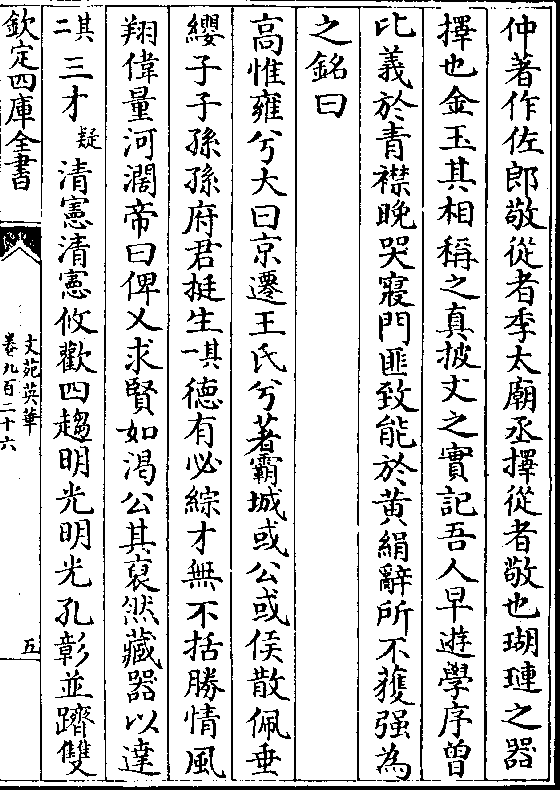 仲著作佐郎敬從者季太廟丞擇從者敬也瑚璉之器
擇也金玉其相稱之真披文之實記吾人早遊學序曽
比義於青襟晚哭寢門匪致能於黄絹辭所不獲强為
之銘曰
髙惟雍兮大曰京遷王氏兮著霸城或公或侯散佩垂
纓子子孫孫府君挺生其一德有必綜才無不括勝情風
翔偉量河濶帝曰俾乂求賢如渴公其裒然藏器以達
其二三才疑清憲清憲攸歡四趨明光明光孔彰並躋雙
欽定四庫全書
文苑英華
卷九百二十六
五